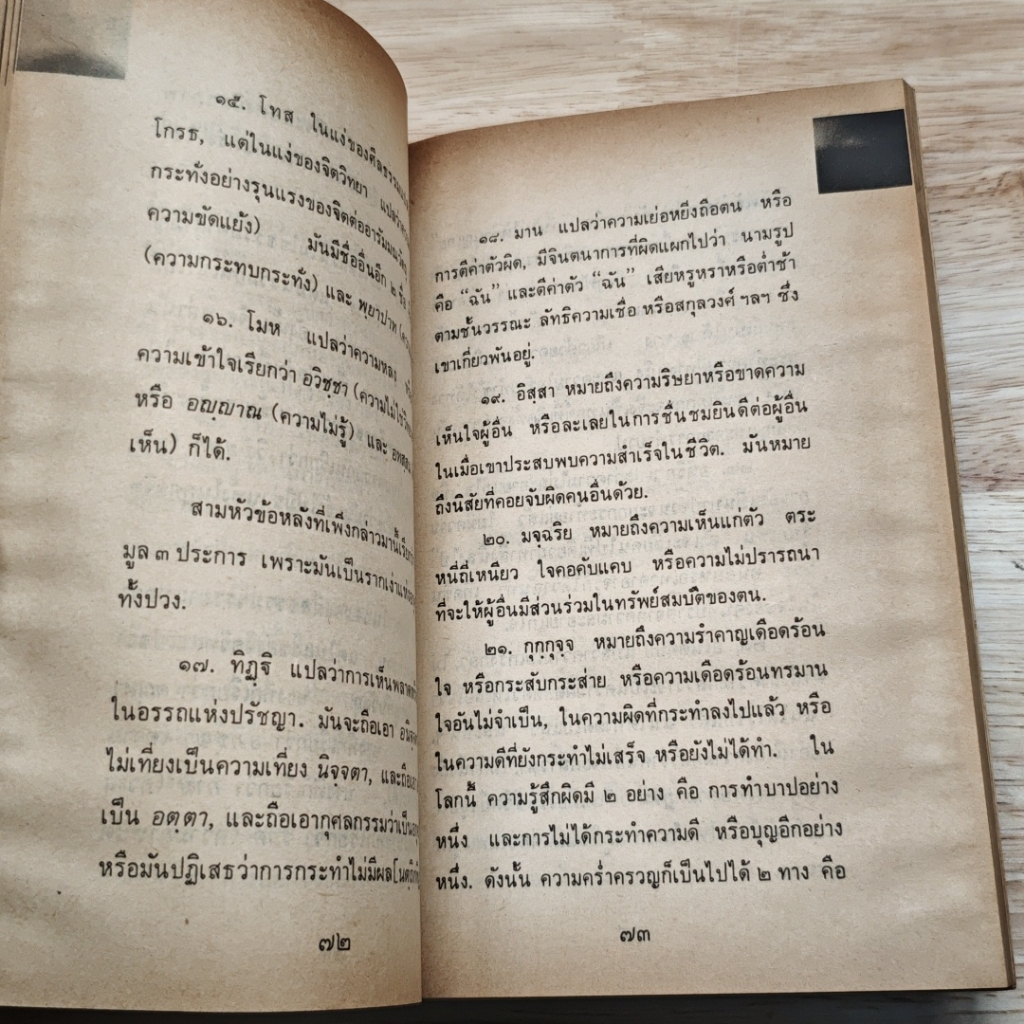 ๑๕. โทส ในแง่ของศีลธรรม
โกรธ, แต่ในแง่ของจิตวิทยา แปลว่า
กระทั่งอย่างรุนแรงของจิตต่ออารมณ์
ความขัดแย้ง) มันมีชื่ออื่นอีก ๒ ชื่อ
(ความกระทบกระทั่ง) และ พฺยาปาท
๑๖. โมห แปลว่าความหลง
ความเข้าใจเรียกว่า อวิชฺชา (ความไม่ใช่
หรือ อญฺญาณ (ความไม่รู้) และ
เห็น) ก็ได้.
สามหัวข้อหลังที่เพิ่งกล่าวมานี้
มูล ๓ ประการ เพราะมันเป็นรากเง่า
ทั้งปวง.
๑๗. ทิฏฺฐิ แปลว่าการเห็นพลาด
ในอรรถแห่งปรัชญา. มันจะถือเอา
ไม่เที่ยงเป็นความเที่ยง นิจจตา, และถือ
เป็น อตฺตา, และถือเอากุศลกรรมว่าเป็น
หรือมันปฏิเสธว่าการกระทำไม่มีผล
๗๒
๑๘. มาน แปลว่าความเย่อหยิ่งถือตน หรือ
การตีค่าตัวผิด, มีจินตนาการที่ผิดแผกไปว่า นามรูป
คือ “ฉัน” และตีค่าตัว “ฉัน” เสียหรูหราหรือต่ำช้า
ตามชั้นวรรณะ ลัทธิความเชื่อ หรือสกุลวงศ์ ฯลฯ ซึ่ง
เขาเกี่ยวพันอยู่.
๑๙. อิสฺสา หมายถึงความริษยาหรือขาดความ
เห็นใจผู้อื่น หรือละเลยในการชื่นชมยินดีต่อผู้อื่น
ในเมื่อเขาประสบพบความสำเร็จในชีวิต. มันหมาย
ถึงนิสัยที่คอยจับผิดคนอื่นด้วย.
๒๐. มจฺฉริย หมายถึงความเห็นแก่ตัว ตระ
หนี่ถี่เหนียว ใจคอคับแคบ หรือความไม่ปรารถนา
ที่จะให้ผู้อื่นมีส่วนร่วมในทรัพย์สมบัติของตน.
๒๑. กุกฺกุจฺจ หมายถึงความรำคาญเดือดร้อน
ใจ หรือกระสับกระส่าย หรือความเดือดร้อนทรมาน
ใจอันไม่จำเป็น, ในความผิดที่กระทำลงไปแล้ว หรือ
ในความดีที่ยังกระทำไม่เสร็จ หรือยังไม่ได้ทำ. ใน
โลกนี้ ความรู้สึกผิดมี ๒ อย่าง คือ การทำบาปอย่าง
หนึ่ง และการไม่ได้กระทำความดี หรือบุญอีกอย่าง
หนึ่ง. ดังนั้น ความคร่ำครวญก็เป็นไปได้ ๒ ทาง คือ
๗๓